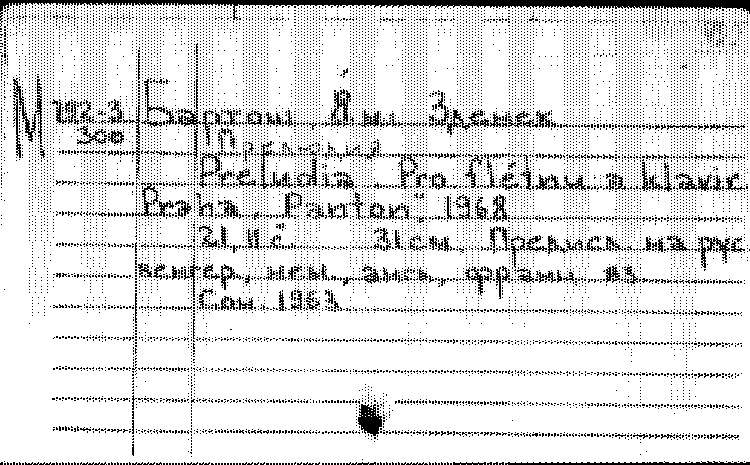 М 192-3 Бартош, Ян Зденек
300 [Прелюдия
Preludia. Pro flétnu a klavír.
Praha, "Panton", 1968
21, 11 с. 31 см. Предисл. на рус.
венгер., нем., англ., франц. яз.
Соч. 1963